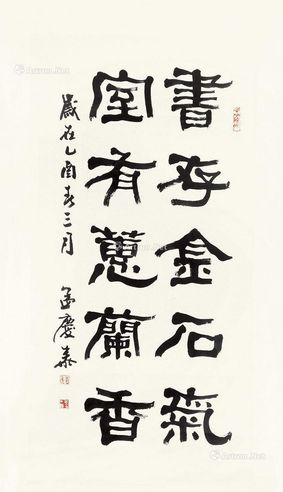 書存金石氣
室有蕙蘭香
歲在乙酉春三月
孟慶泰
Artron.Net
Artron.Net
Artron.Net
Artron.Net